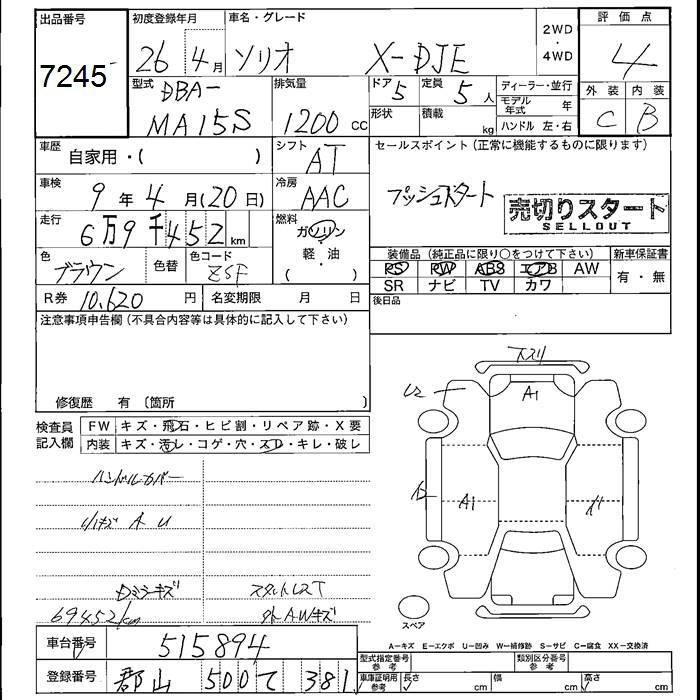 出品番号 初度登録年月 車名・グレード 2WD・4WD 評価点
7245 26 4月 ソリオ X-DJE 4
型式 DBA- MA15S 排気量 1200 cc ドア 5 定員 5人 ディーラー・並行 外装 内装
形状 積載 kg モデル年式 年 C B
ハンドル 左・右
車歴 自家用・( ) シフト AT セールスポイント(正常に機能するものに限ります)
車検 9年4月(20日) 冷房 AAC プッシュスタート 売切りスタート
SELLOUT
走行 6万9千452km 燃料 ガソリン・軽油 ( )
装備品(純正品に限り○をつけて下さい) 新車保証書
色 ブラウン 色替 色コード ZSF PS PW ABS エアB AW 有・無
SR ナビ TV カワ
R券 10,620円 名変期限 月 日 後日品
注意事項申告欄(不具合内容等は具体的に記入して下さい)
修復歴 有 〔箇所 〕
検査員記入欄 FW キズ・飛石・ヒビ割・リペア跡・X要
内装 キズ・汚レ・コゲ・穴・スレ・キレ・破レ
下スリ
A1
A1
ハンドルカバー
A U
Dミラーキズ
69452km
外AWキズ
スペア
A=キズ E=エクボ U=凹み W=補修跡 S=サビ C=腐食 XX=交換済
車台番号 515894 型式指定番号 参考 類別区分番号 参考
登録番号 郡山 500 て 381 車庫証明用 参考 長さ cm 幅 cm 高さ cm